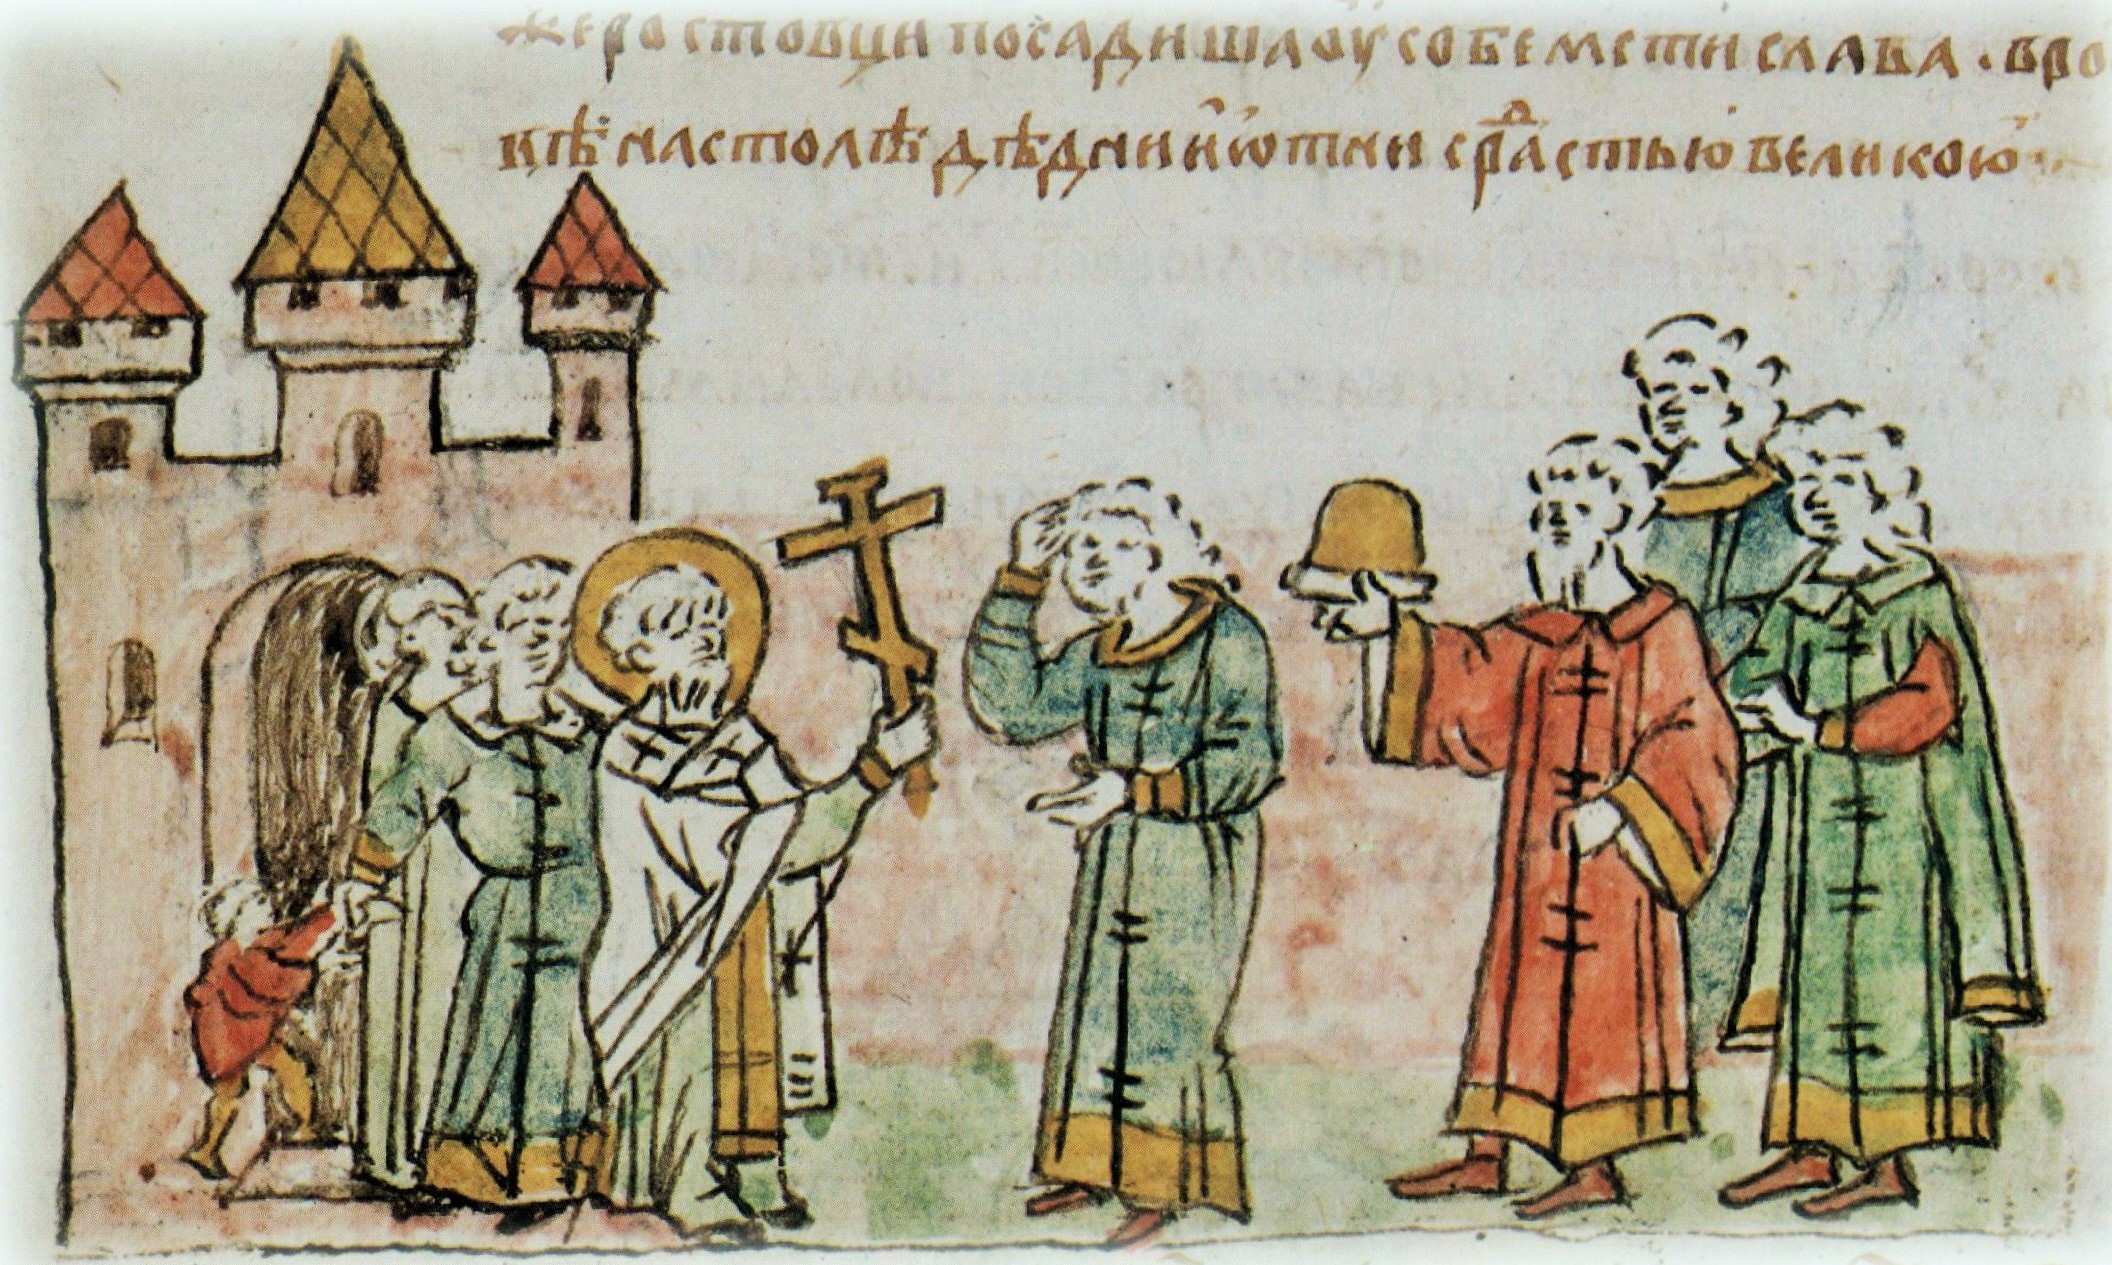 жеростовци посадишаоу собемстислава · вро
вѣ настолѣ дѣднииѡтни срⷣастью великою